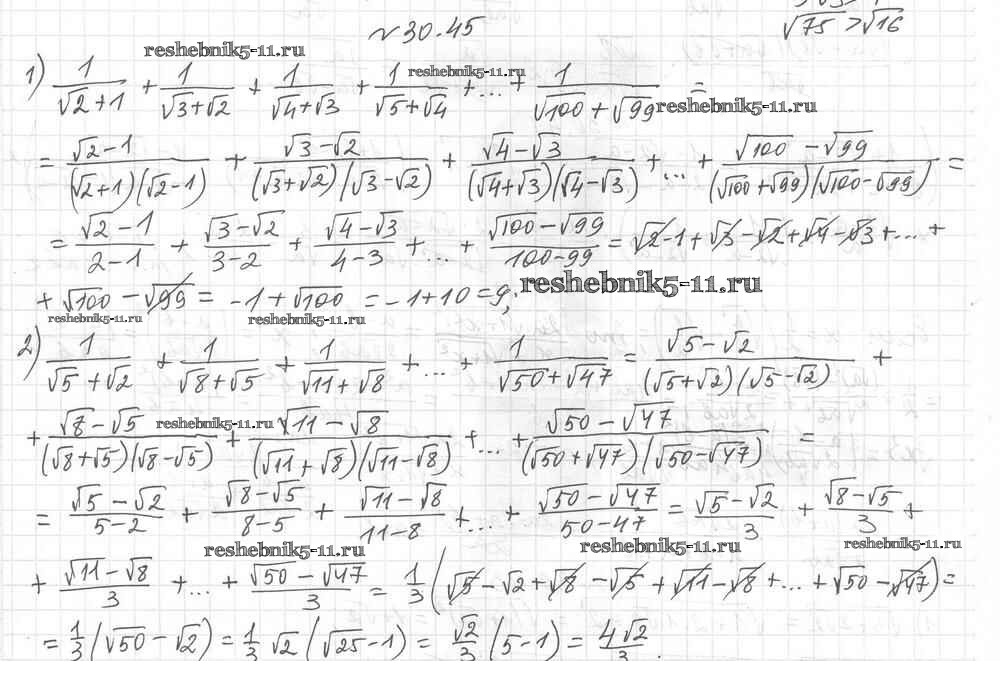 √75 > √16
№ 30.45
reshebnik5-11.ru
1) 1/(√2+1) + 1/(√3+√2) + 1/(√4+√3) + 1/(√5+√4) + ... + 1/(√100+√99) =
reshebnik5-11.ru
reshebnik5-11.ru
= (√2-1)/((√2+1)(√2-1)) + (√3-√2)/((√3+√2)(√3-√2)) + (√4-√3)/((√4+√3)(√4-√3)) + ... + (√100-√99)/((√100+√99)(√100-√99)) =
= (√2-1)/(2-1) + (√3-√2)/(3-2) + (√4-√3)/(4-3) + ... + (√100-√99)/(100-99) = √2-1+√3-√2+√4-√3+...+
+ √100 - √99 = -1+√100 = -1+10 = 9;
reshebnik5-11.ru
reshebnik5-11.ru
reshebnik5-11.ru
2) 1/(√5+√2) + 1/(√8+√5) + 1/(√11+√8) + ... + 1/(√50+√47) = (√5-√2)/((√5+√2)(√5-√2)) +
+ (√8-√5)/((√8+√5)(√8-√5)) + (√11-√8)/((√11+√8)(√11-√8)) + ... + (√50-√47)/((√50+√47)(√50-√47)) =
reshebnik5-11.ru
= (√5-√2)/(5-2) + (√8-√5)/(8-5) + (√11-√8)/(11-8) + ... + (√50-√47)/(50-47) = (√5-√2)/3 + (√8-√5)/3 +
reshebnik5-11.ru
reshebnik5-11.ru
reshebnik5-11.ru
+ (√11-√8)/3 + ... + (√50-√47)/3 = 1/3(√5-√2+√8-√5+√11-√8+...+√50-√47) =
= 1/3(√50-√2) = 1/3 √2(√25-1) = √2/3(5-1) = 4√2/3.